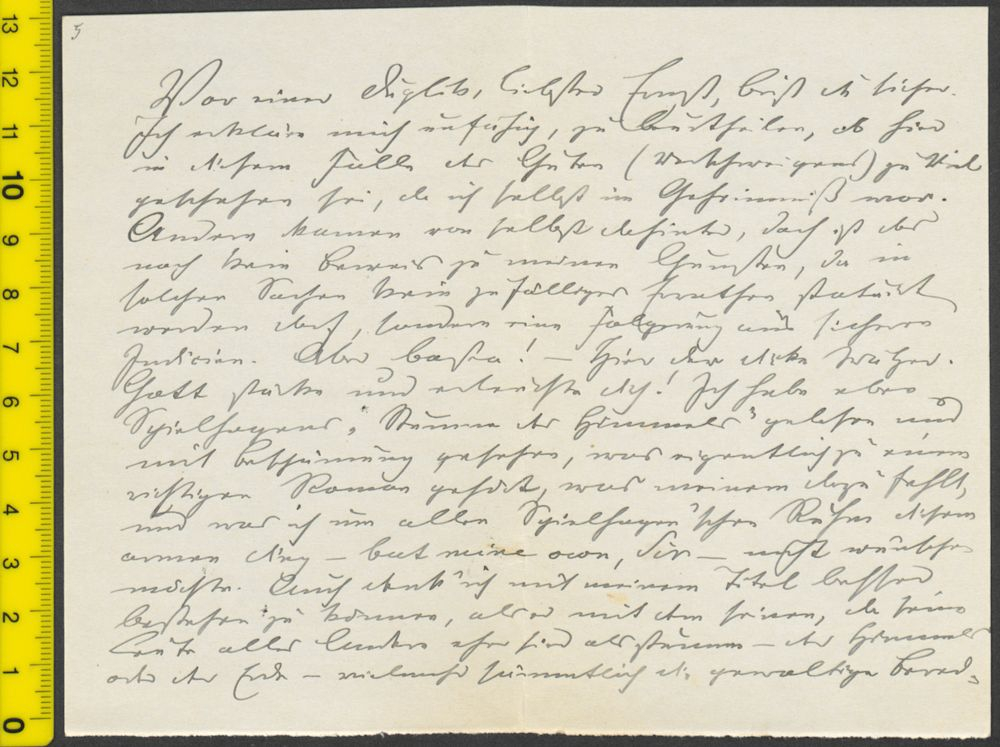 5
Vor einer Düglitz, liebster Ernst, bist du sicher.
Ich erkläre mich unfähig, zu beurtheilen, ob hier
in diesem Falle des Guten (Verschweigens) zu Viel
geschehen sei, da ich selbst im Geheimniß war.
Andere kamen von selbst dahinter, doch ist das
noch kein Beweis zu meinen Gunsten, da in
solchen Sachen kein zufälliges Errathen statuirt
werden darf, sondern eine Folgerung aus sicheren
Indicien. Aber basta! — Hier der dicke Wälzer.
Gott stärke und erleuchte dich! Ich habe eben
Spielhagens "Stumme des Himmels" gelesen und
mit Beschämung gesehen, was eigentlich zu einem
richtigen Roman gehört, was meinem dazu fehlt,
und was ich um allen Spielhagen'schen Ruhm diesem
armen Ding — but mine own, Sir — nicht wünschen
möchte. Auch denk' ich mit meinem Titel besser
bestehen zu können, als er mit dem seinen, da seine
Leute alles Andere eher sind als stumme — des Himmels
oder der Erde — vielmehr sämmtlich die gewaltige Bered-